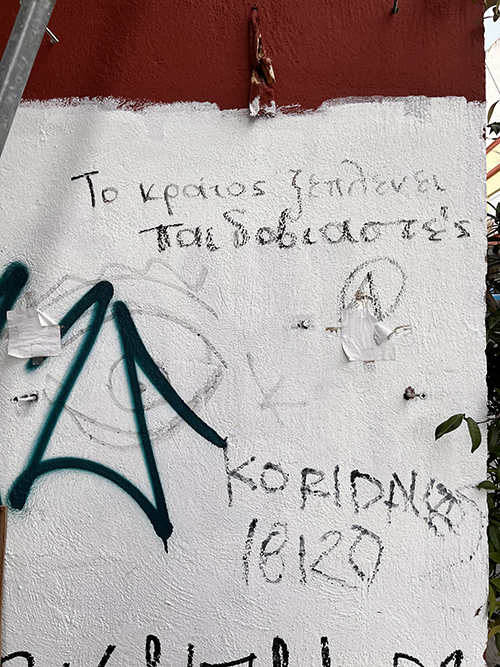 Το κράτος ξεπλένει
παιδοβιαστές
A
K
18120